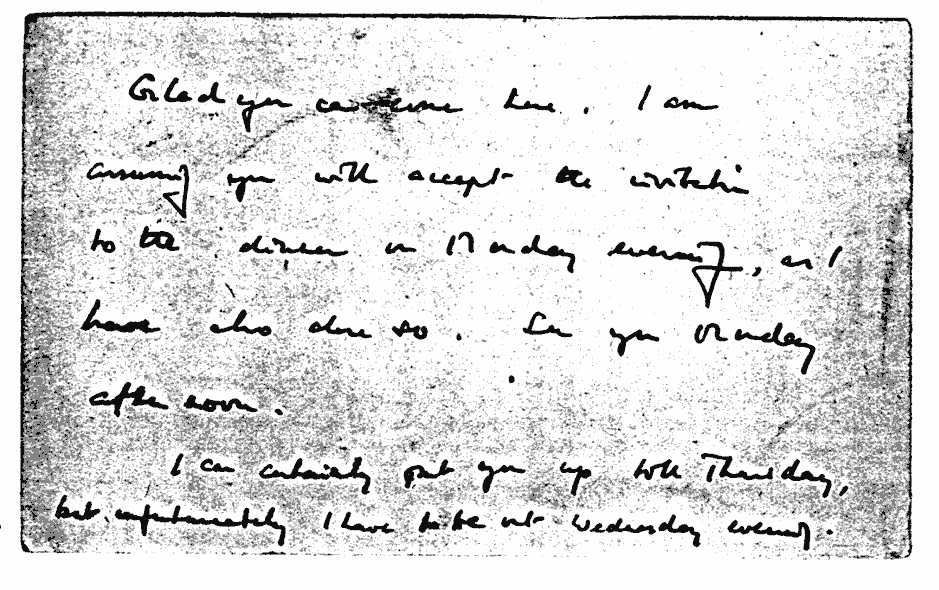 Glad you can come here. I am
assuming you will accept the invitation
to the dinner on Monday evening, as I
have also done so. See you Monday
afternoon.
I can certainly put you up till Thursday,
but unfortunately I have to be out Wednesday evening.